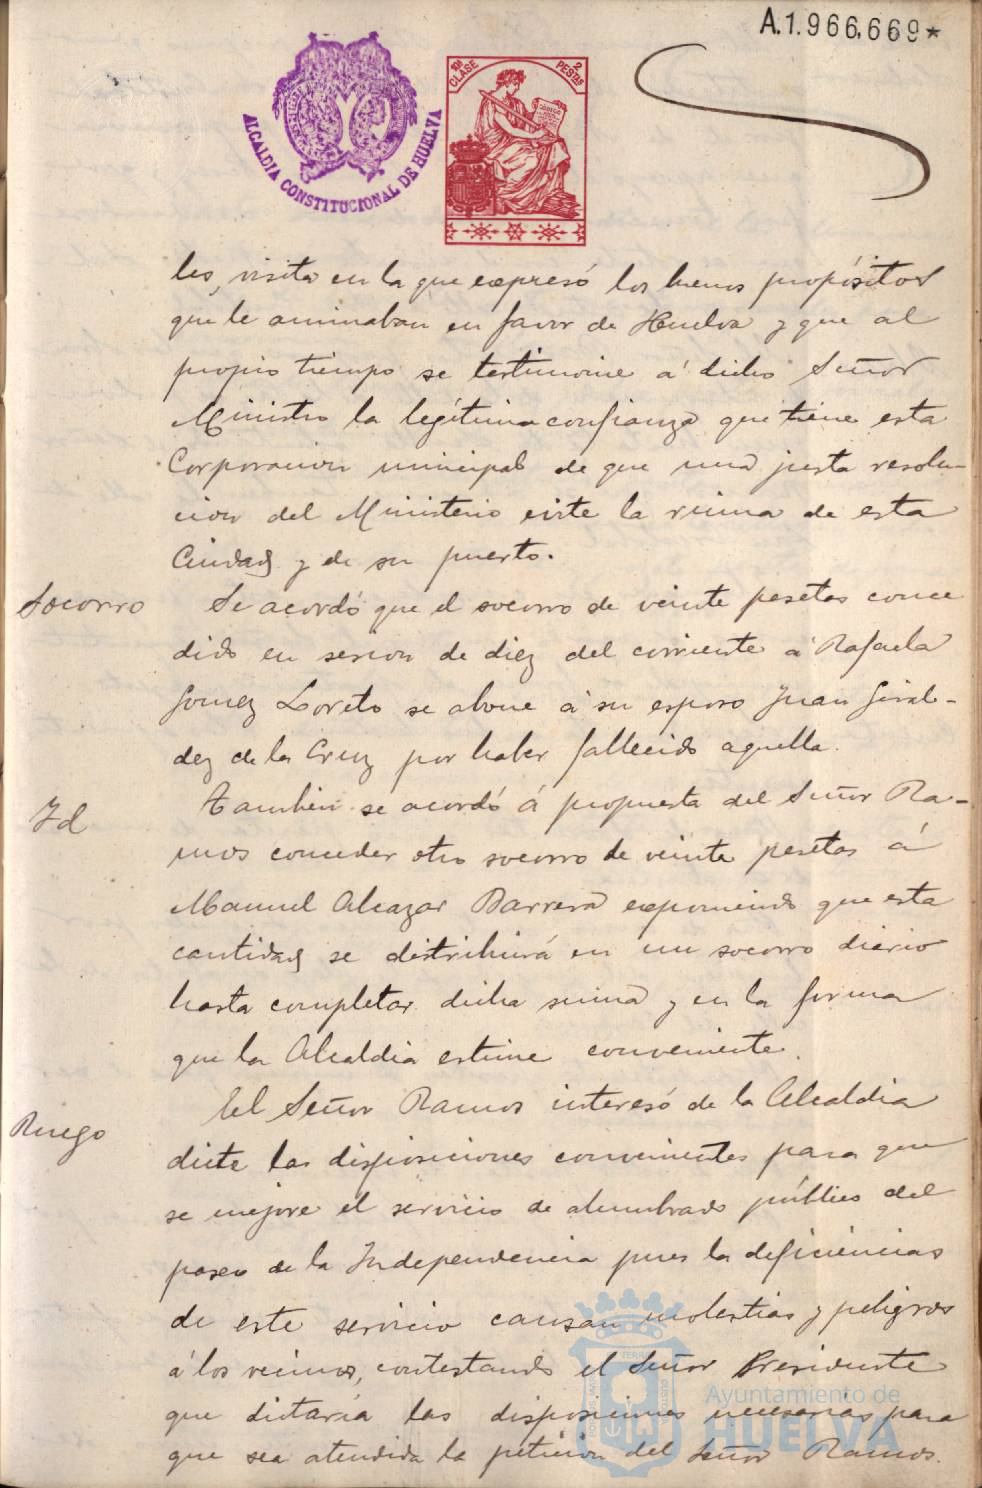 A.1.966.669*
ALCALDIA CONSTITUCIONAL DE HUELVA
10ª CLASE 2 PESTAS
les, visita en la que expresó los buenos propósitos
que le animaban en favor de Huelva y que al
propio tiempo se testimonie á dicho Señor
Ministro la legítima confianza que tiene esta
Corporacion municipal de que una justa resolu-
cion del Ministerio evite la ruina de esta
Ciudad y de su puerto.
Socorro
Se acordó que el socorro de veinte pesetas conce
dido en sesion de diez del corriente á Rafaela
Gomez Loreto se abone á su esposo Juan Giral-
dez de la Cruz por haber fallecido aquella.
Id
Tambien se acordó á propuesta del Señor Ra-
mos conceder otro socorro de veinte pesetas á
Manuel Alcazar Barrera exponiendo que esta
cantidad se distribuirá en un socorro diario
hasta completar dicha suma y en la forma
que la Alcaldia estime conveniente.
Ruego
El Señor Ramos interesó de la Alcaldia
dicte las disposiciones convenientes para que
se mejore el servicio de alumbrado público del
paseo de la Independencia pues la deficiencias
de este servicio causan molestias y peligros
á los vecinos, contestando el Señor Presidente
que dictaria las disposiciones necesarias para
que sea atendida la peticion del Señor Ramos.
Ayuntamiento de
HUELVA